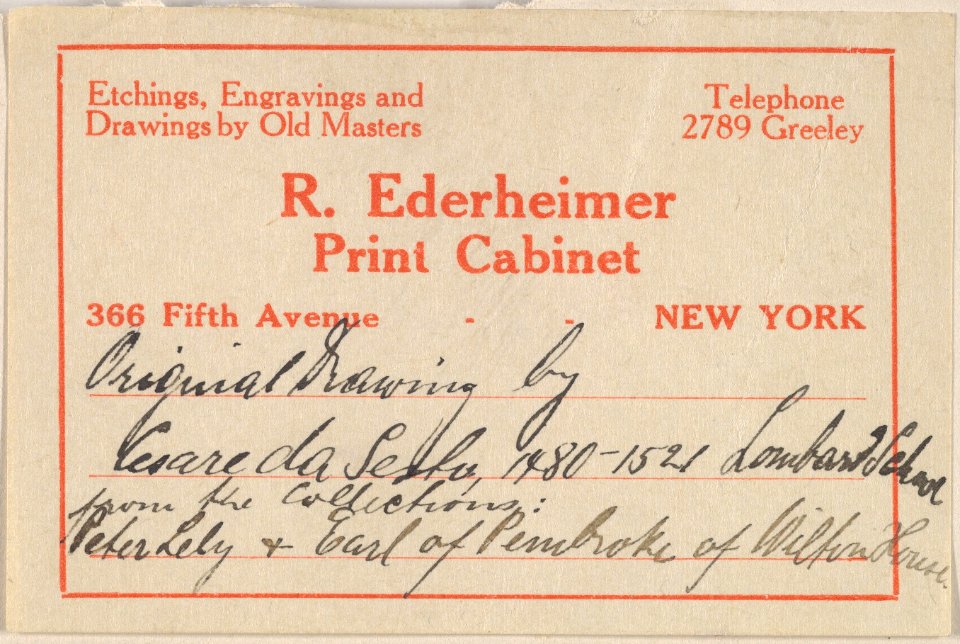 Etchings, Engravings and
Drawings by Old Masters
Telephone
2789 Greeley
R. Ederheimer
Print Cabinet
366 Fifth Avenue - - NEW YORK
Original Drawing by
Cesare da Sesto, 1480-1521 Lombard School
from the collections:
Peter Lely + Earl of Pembroke of Wilton House.